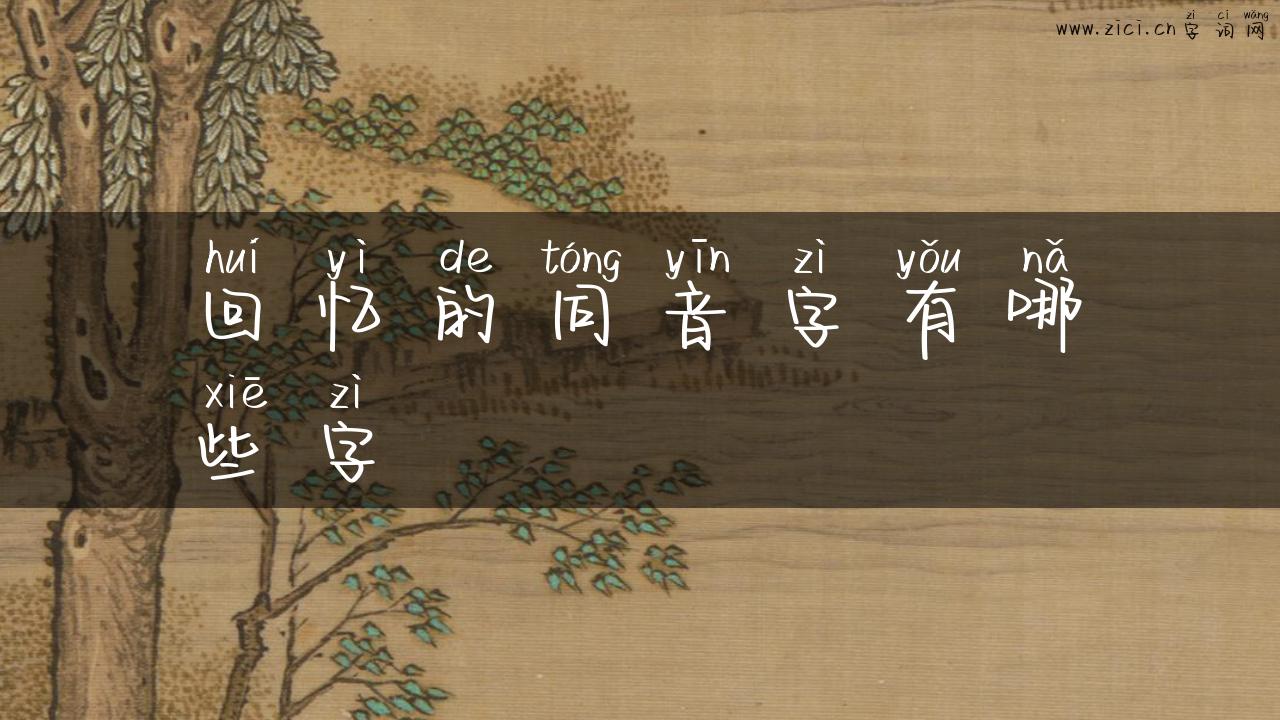 zì cí wǎng
www.zici.cn 字 词 网
huí yì de tóng yīn zì yǒu nǎ
回 忆 的 同 音 字 有 哪
xiē zì
些 字